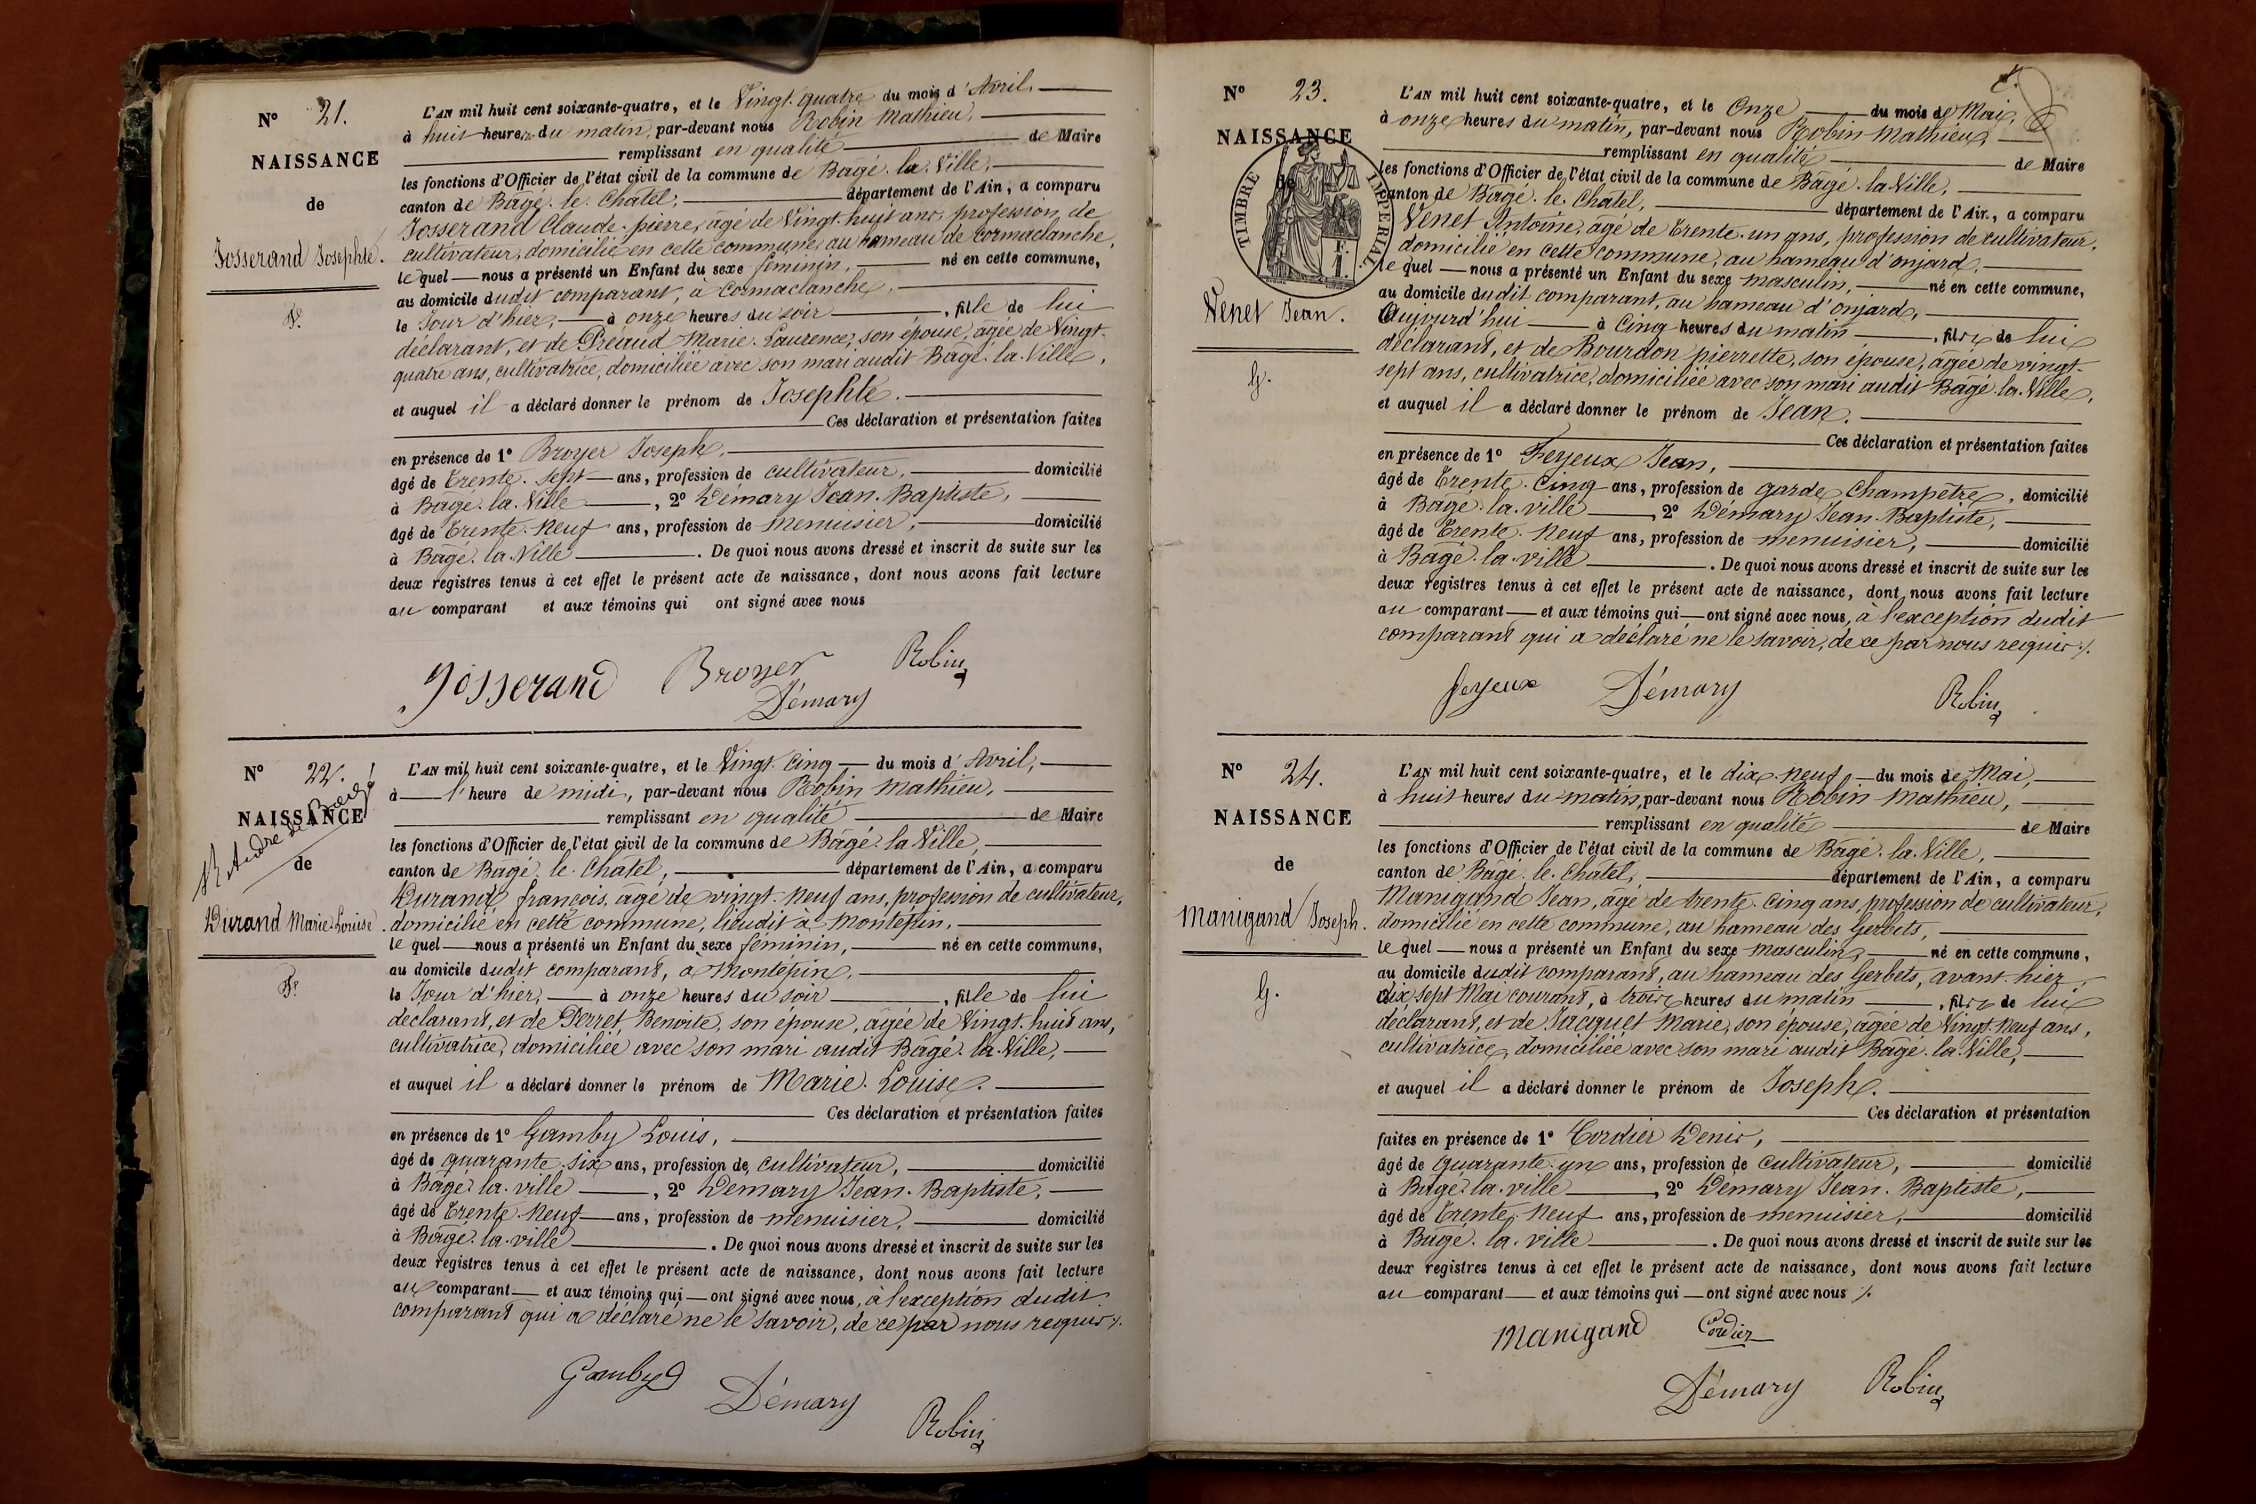 N° 21.
NAISSANCE
de
Josserand Josephte.
F.
L'AN mil huit cent soixante-quatre, et le Vingt-quatre du mois d'Avril,
à huit heures du matin, par-devant nous Robin Mathieu,
remplissant en qualité de Maire
les fonctions d'Officier de l'état civil de la commune de Bâgé-la-Ville,
canton de Bâgé-le-Châtel, département de l'Ain, a comparu
Josserand Claude-pierre, âgé de Vingt-huit ans, profession de
cultivateur, domicilié en cette commune, au hameau de cormaclanche,
le quel nous a présenté un Enfant du sexe féminin, né en cette commune,
au domicile dudit comparant, à Cormaclanche,
le Jour d'hier, à onze heures du soir, fille de lui
déclarant, et de Préaud Marie-Laurence, son épouse, âgée de Vingt-
quatre ans, cultivatrice, domiciliée avec son mari audit Bâgé-la-Ville,
et auquel il a déclaré donner le prénom de Josephte.
Ces déclaration et présentation faites
en présence de 1° Broyer Joseph,
âgé de Trente-sept ans, profession de cultivateur, domicilié
à Bâgé-la-Ville, 2° Démary Jean-Baptiste,
âgé de Trente-Neuf ans, profession de menuisier, domicilié
à Bâgé-la-Ville. De quoi nous avons dressé et inscrit de suite sur les
deux registres tenus à cet effet le présent acte de naissance, dont nous avons fait lecture
au comparant et aux témoins qui ont signé avec nous
Josserand Broyer Robin
Démary
N° 22.
NAISSANCE
de
Durand Marie-Louise.
F.
L'AN mil huit cent soixante-quatre, et le Vingt-Cinq du mois d'Avril,
à l'heure de midi, par-devant nous Robin Mathieu,
remplissant en qualité de Maire
les fonctions d'Officier de l'état civil de la commune de Bâgé-la-Ville,
canton de Bâgé-le-Châtel, département de l'Ain, a comparu
Durand françois, âgé de vingt-Neuf ans, profession de cultivateur,
domicilié en cette commune, lieudit à Montépin,
le quel nous a présenté un Enfant du sexe féminin, né en cette commune,
au domicile dudit comparant, à Montépin,
le Jour d'hier, à onze heures du soir, fille de lui
déclarant, et de Perret Benoite, son épouse, âgée de Vingt-huit ans,
cultivatrice, domiciliée avec son mari audit Bâgé-la-Ville,
et auquel il a déclaré donner le prénom de Marie-Louise.
Ces déclaration et présentation faites
en présence de 1° Gamby Louis,
âgé de quarante-six ans, profession de cultivateur, domicilié
à Bâgé-la-ville, 2° Démary Jean-Baptiste,
âgé de Trente-Neuf ans, profession de menuisier, domicilié
à Bâgé-la-ville. De quoi nous avons dressé et inscrit de suite sur les
deux registres tenus à cet effet le présent acte de naissance, dont nous avons fait lecture
au comparant et aux témoins qui ont signé avec nous, à l'exception dudit
comparant qui a déclaré ne le savoir, de ce par nous requis %.
Gamby Démary Robin
N° 23.
NAISSANCE
de
TIMBRE IMPÉRIAL
Venet Jean.
G.
L'AN mil huit cent soixante-quatre, et le Onze du mois de Mai,
à onze heures du matin, par-devant nous Robin Mathieu,
remplissant en qualité de Maire
les fonctions d'Officier de l'état civil de la commune de Bâgé-la-Ville,
canton de Bâgé-le-Châtel, département de l'Ain, a comparu
Venet Antoine, âgé de Trente-un ans, profession de cultivateur,
domicilié en cette commune, au hameau d'onjard,
le quel nous a présenté un Enfant du sexe masculin, né en cette commune,
au domicile dudit comparant, au hameau d'onjard,
Aujourd'hui à Cinq heures du matin, fils de lui
déclarant, et de Bourdon pierrette, son épouse, âgée de vingt-
sept ans, cultivatrice, domiciliée avec son mari audit Bâgé-la-Ville,
et auquel il a déclaré donner le prénom de Jean.
Ces déclaration et présentation faites
en présence de 1° Feyeux Jean,
âgé de Trente-Cinq ans, profession de garde Champêtre, domicilié
à Bâgé-la-ville, 2° Démary Jean-Baptiste,
âgé de Trente-Neuf ans, profession de menuisier, domicilié
à Bâgé-la-ville. De quoi nous avons dressé et inscrit de suite sur les
deux registres tenus à cet effet le présent acte de naissance, dont nous avons fait lecture
au comparant et aux témoins qui ont signé avec nous, à l'exception dudit
comparant qui a déclaré ne le savoir, de ce par nous requis %.
feyeux Démary Robin
N° 24.
NAISSANCE
de
Manigand Joseph.
G.
L'AN mil huit cent soixante-quatre, et le dix-Neuf du mois de Mai,
à huit heures du matin, par-devant nous Robin Mathieu,
remplissant en qualité de Maire
les fonctions d'Officier de l'état civil de la commune de Bâgé-la-Ville,
canton de Bâgé-le-Châtel, département de l'Ain, a comparu
Manigand Jean, âgé de trente-cinq ans, profession de cultivateur,
domicilié en cette commune, au hameau des Gerbets,
le quel nous a présenté un Enfant du sexe masculin, né en cette commune,
au domicile dudit comparant, au hameau des Gerbets, avant-hier
dix sept Mai courant, à trois heures du matin, fils de lui
déclarant, et de Jacquet Marie, son épouse, âgée de Vingt-Neuf ans,
cultivatrice, domiciliée avec son mari audit Bâgé-la-Ville,
et auquel il a déclaré donner le prénom de Joseph.
Ces déclaration et présentation
faites en présence de 1° Cordier Denis,
âgé de Quarante-un ans, profession de cultivateur, domicilié
à Bâgé-la-ville, 2° Démary Jean-Baptiste,
âgé de Trente-Neuf ans, profession de menuisier, domicilié
à Bâgé-la-ville. De quoi nous avons dressé et inscrit de suite sur les
deux registres tenus à cet effet le présent acte de naissance, dont nous avons fait lecture
au comparant et aux témoins qui ont signé avec nous %.
Manigand Cordier
Démary Robin